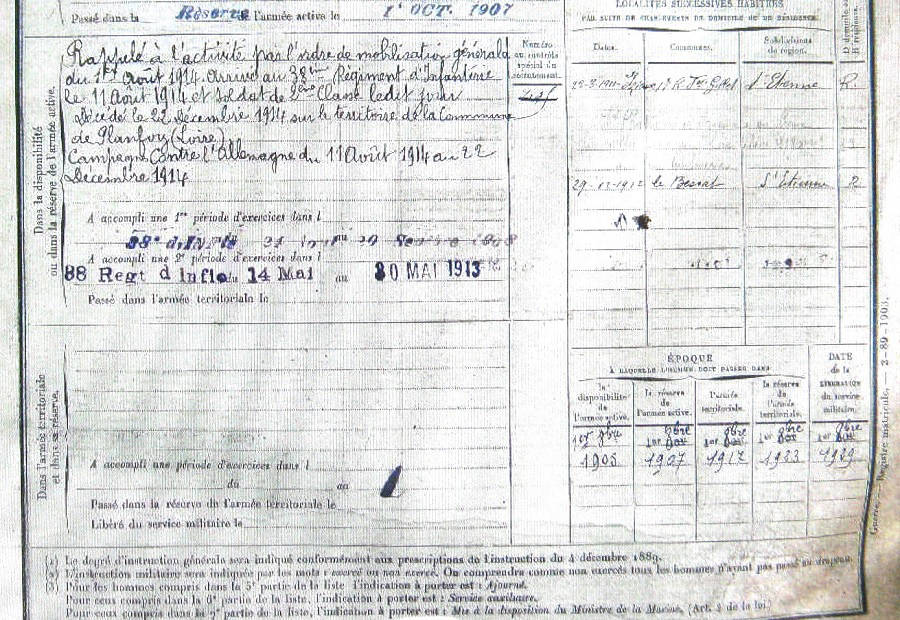 Passé dans la Réserve de l'armée active le 1er OCT. 1907
Dans la disponibilité
ou dans la réserve de l'armée active.
Rappelé à l'activité par l'ordre de mobilisation générale
du 1er Août 1914. Arrivé au 38ème Régiment d'Infanterie
le 11 Août 1914 et soldat de 2ème Classe ledit jour
Décédé le 22 Décembre 1914 sur le territoire de la Commune
de Planfoy (Loire)
Campagne Contre l'Allemagne du 11 Août 1914 au 22
Décembre 1914
A accompli une 1re période d'exercices dans l
38e d'Inf
A accompli une 2e période d'exercices dans l
88 Regt d'Infie du 14 Mai au 30 MAI 1913
Passé dans l'armée territoriale le
Numéro
au contrôle
spécial du
recrutement.
LOCALITÉS SUCCESSIVES HABITÉES
PAR SUITE DE CHANGEMENTS DE DOMICILE OU DE RÉSIDENCE.
Dates.
Communes.
Subdivisions
de région.
D domicile ou
R résidence.
St Etienne R.
29 - 12 - 1912 le Bessat St Etienne R
Dans l'armée territoriale
et dans sa réserve.
A accompli une période d'exercices dans l
du au
Passé dans la réserve de l'armée territoriale le
Libéré du service militaire le
ÉPOQUE
À LAQUELLE L'HOMME DOIT PASSER DANS
la
disponibilité
de
l'armée active.
la réserve
de
l'armée active.
l'armée
territoriale.
la réserve
de
l'armée
territoriale.
DATE
de la
LIBÉRATION
du service
militaire.
1er 8bre 1er 8bre 1er 8bre 1er 8bre 1er 8bre
1905 1907 1917 1923 1929
Guerre. — Registre matricule. — 2-89-1903.
(1) Le degré d'instruction générale sera indiqué conformément aux prescriptions de l'instruction du 4 décembre 1889.
(2) L'instruction militaire sera indiquée par les mots exercé ou non exercé. On comprendra comme non exercés tous les hommes n'ayant pas passé au drapeau.
(3) Pour les hommes compris dans la 5e partie de la liste l'indication à porter est : Ajourné.
Pour ceux compris dans la 6e partie de la liste, l'indication à porter est : Service auxiliaire.
Pour ceux compris dans la 7e partie de la liste, l'indication à porter est : Mis à la disposition du Ministre de la Marine, (Art. 4 de la loi.)